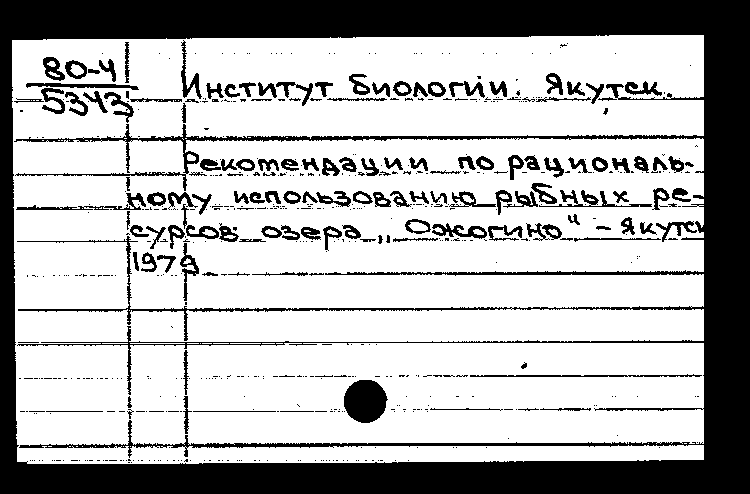 80-4
5343
Институт биологии. Якутск.
Рекомендации по рациональ-
ному использованию рыбных ре-
сурсов озера „Ожогино" – Якутск
1979